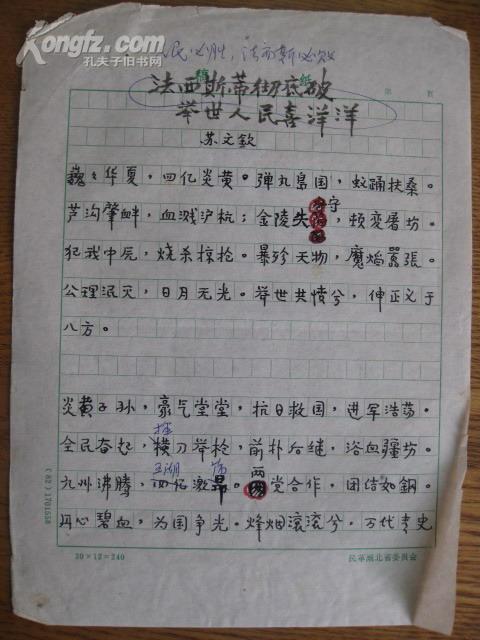 Kongfz.com
孔夫子旧书网
民必胜，法西斯必败
稿 纸
第 页
法西斯蒂彻底破
举世人民喜洋洋
苏文钦
巍々华夏，四亿炎黄。弹丸岛国，蚁踊扶桑。
芦沟肇衅，血溅沪杭；金陵失守，顿变屠坊。
犯我中原，烧杀掠抢。暴殄天物，魔焰嚣張。
公理泯灭，日月无光。举世共愤兮，伸正义于
八方。
炎黄子孙，豪气堂堂，抗日救国，进军浩荡。
全民奋起，横刀举枪，前扑后继，浴血疆坊。
九州沸腾，五湖激昂。两党合作，团结如鋼。
丹心碧血，为国争光。烽烟滚滚兮，万代青史
(82) 1701558
20×12=240
民革湖北省委员会